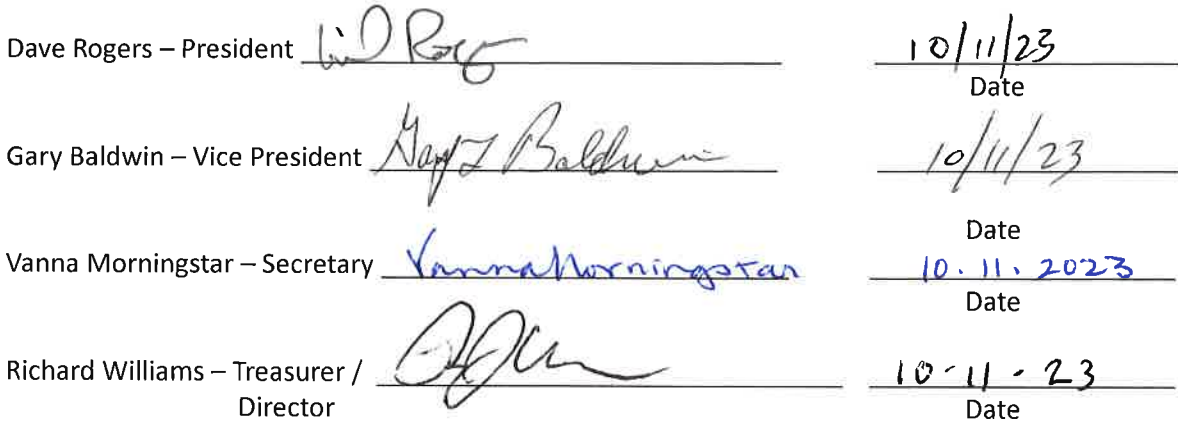 Dave Rogers – President 10/11/23
Date
Gary Baldwin – Vice President Gary L Baldwin 10/11/23
Date
Vanna Morningstar – Secretary Vanna Morningstar 10.11.2023
Date
Richard Williams – Treasurer / 10-11-23
Director Date